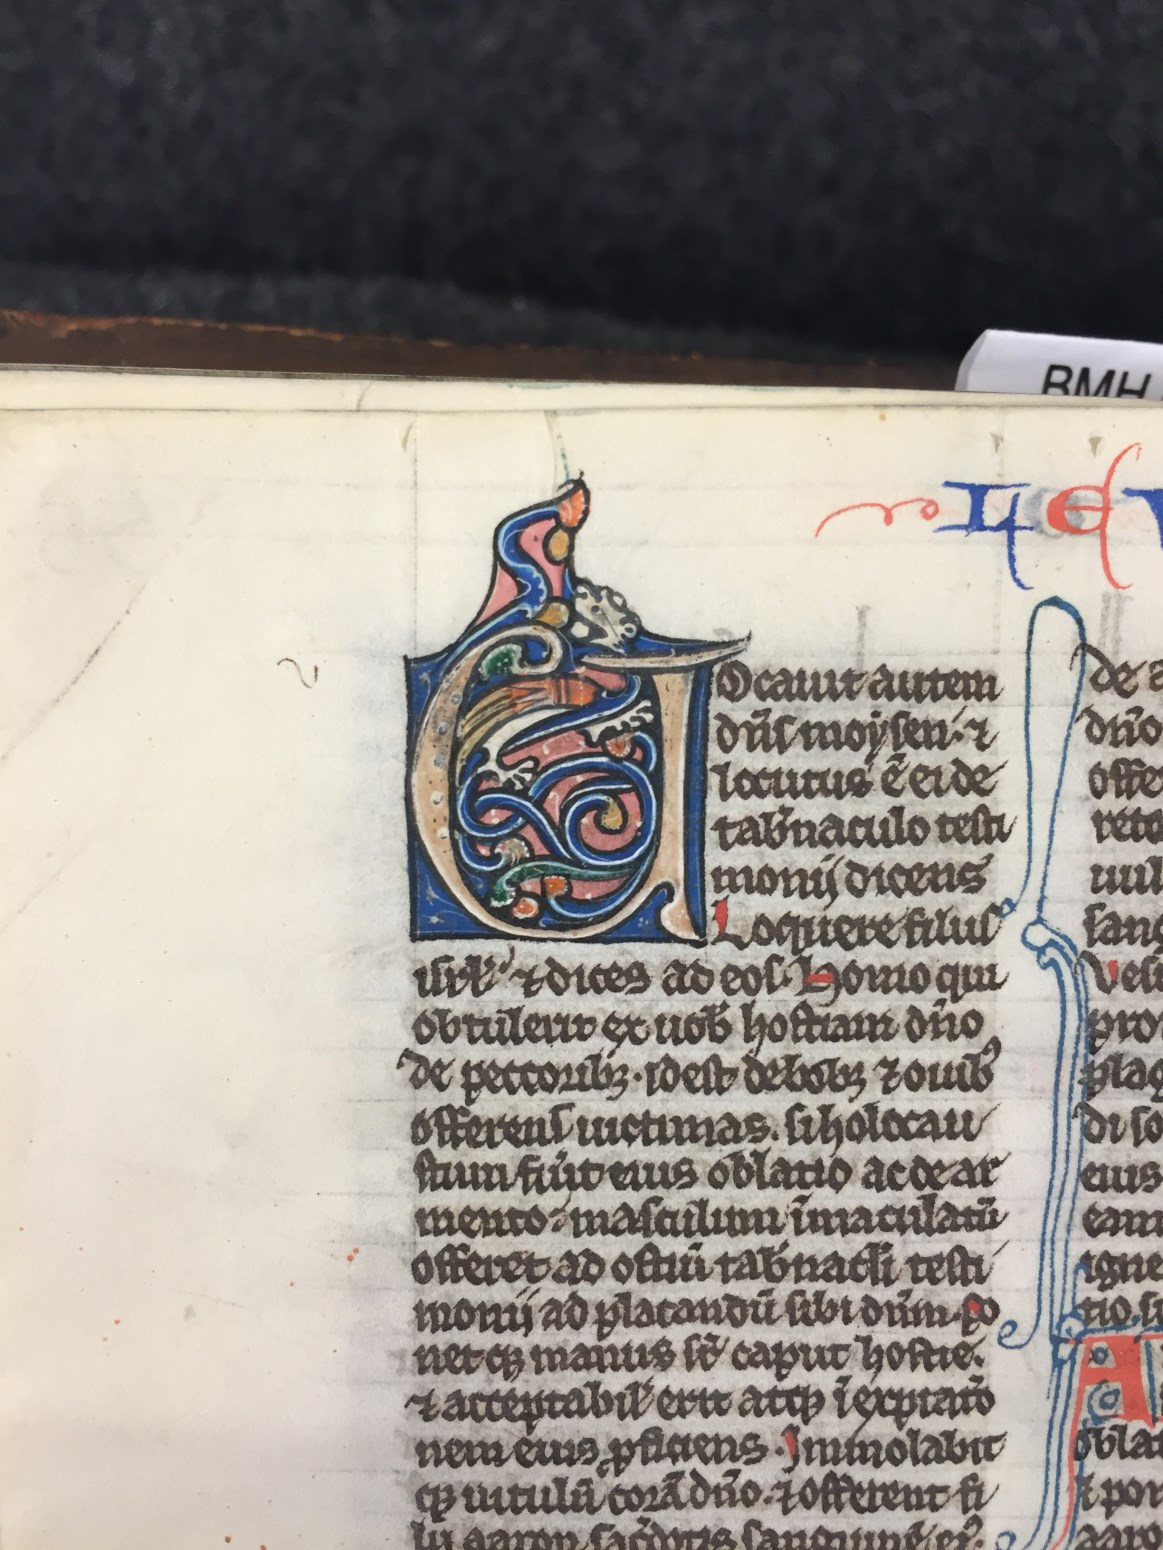 BMH
LEV
Vocauit autem
dn̄s moysen· ⁊
locutus ē ei de
tab̄naculo testi
monij dicens
Loquere filiis
isrl̄· ⁊ dices ad eos· Homo qui
obtulerit ex uob̄ hostiam dn̄o
de peccoribꝫ· id est de bobꝫ ⁊ ouibꝰ
offerens uictimas. si holocau
stum fūit eius oblatio ac de ar
mento· masculum īmaculatū
offeret ad ostiū tab̄nacl̄i testi
monij ad placandū sibi dn̄m· Po
netqꝫ manus sr̄ caput hostie.
⁊ acceptabil̄ erit atqꝫ ī expiatō
nem eius ꝓficiens· Immolabit
qꝫ uitulū corā dn̄o· ⁊ offerent fi
lii aaron sac̄dotis sanguinē eiꝰ
de a
dn̄o
offe
rẽto
sang
Vesti
pro
plag
di so
eius
eam
igne
tio. si
A
oblat
i por
aaro